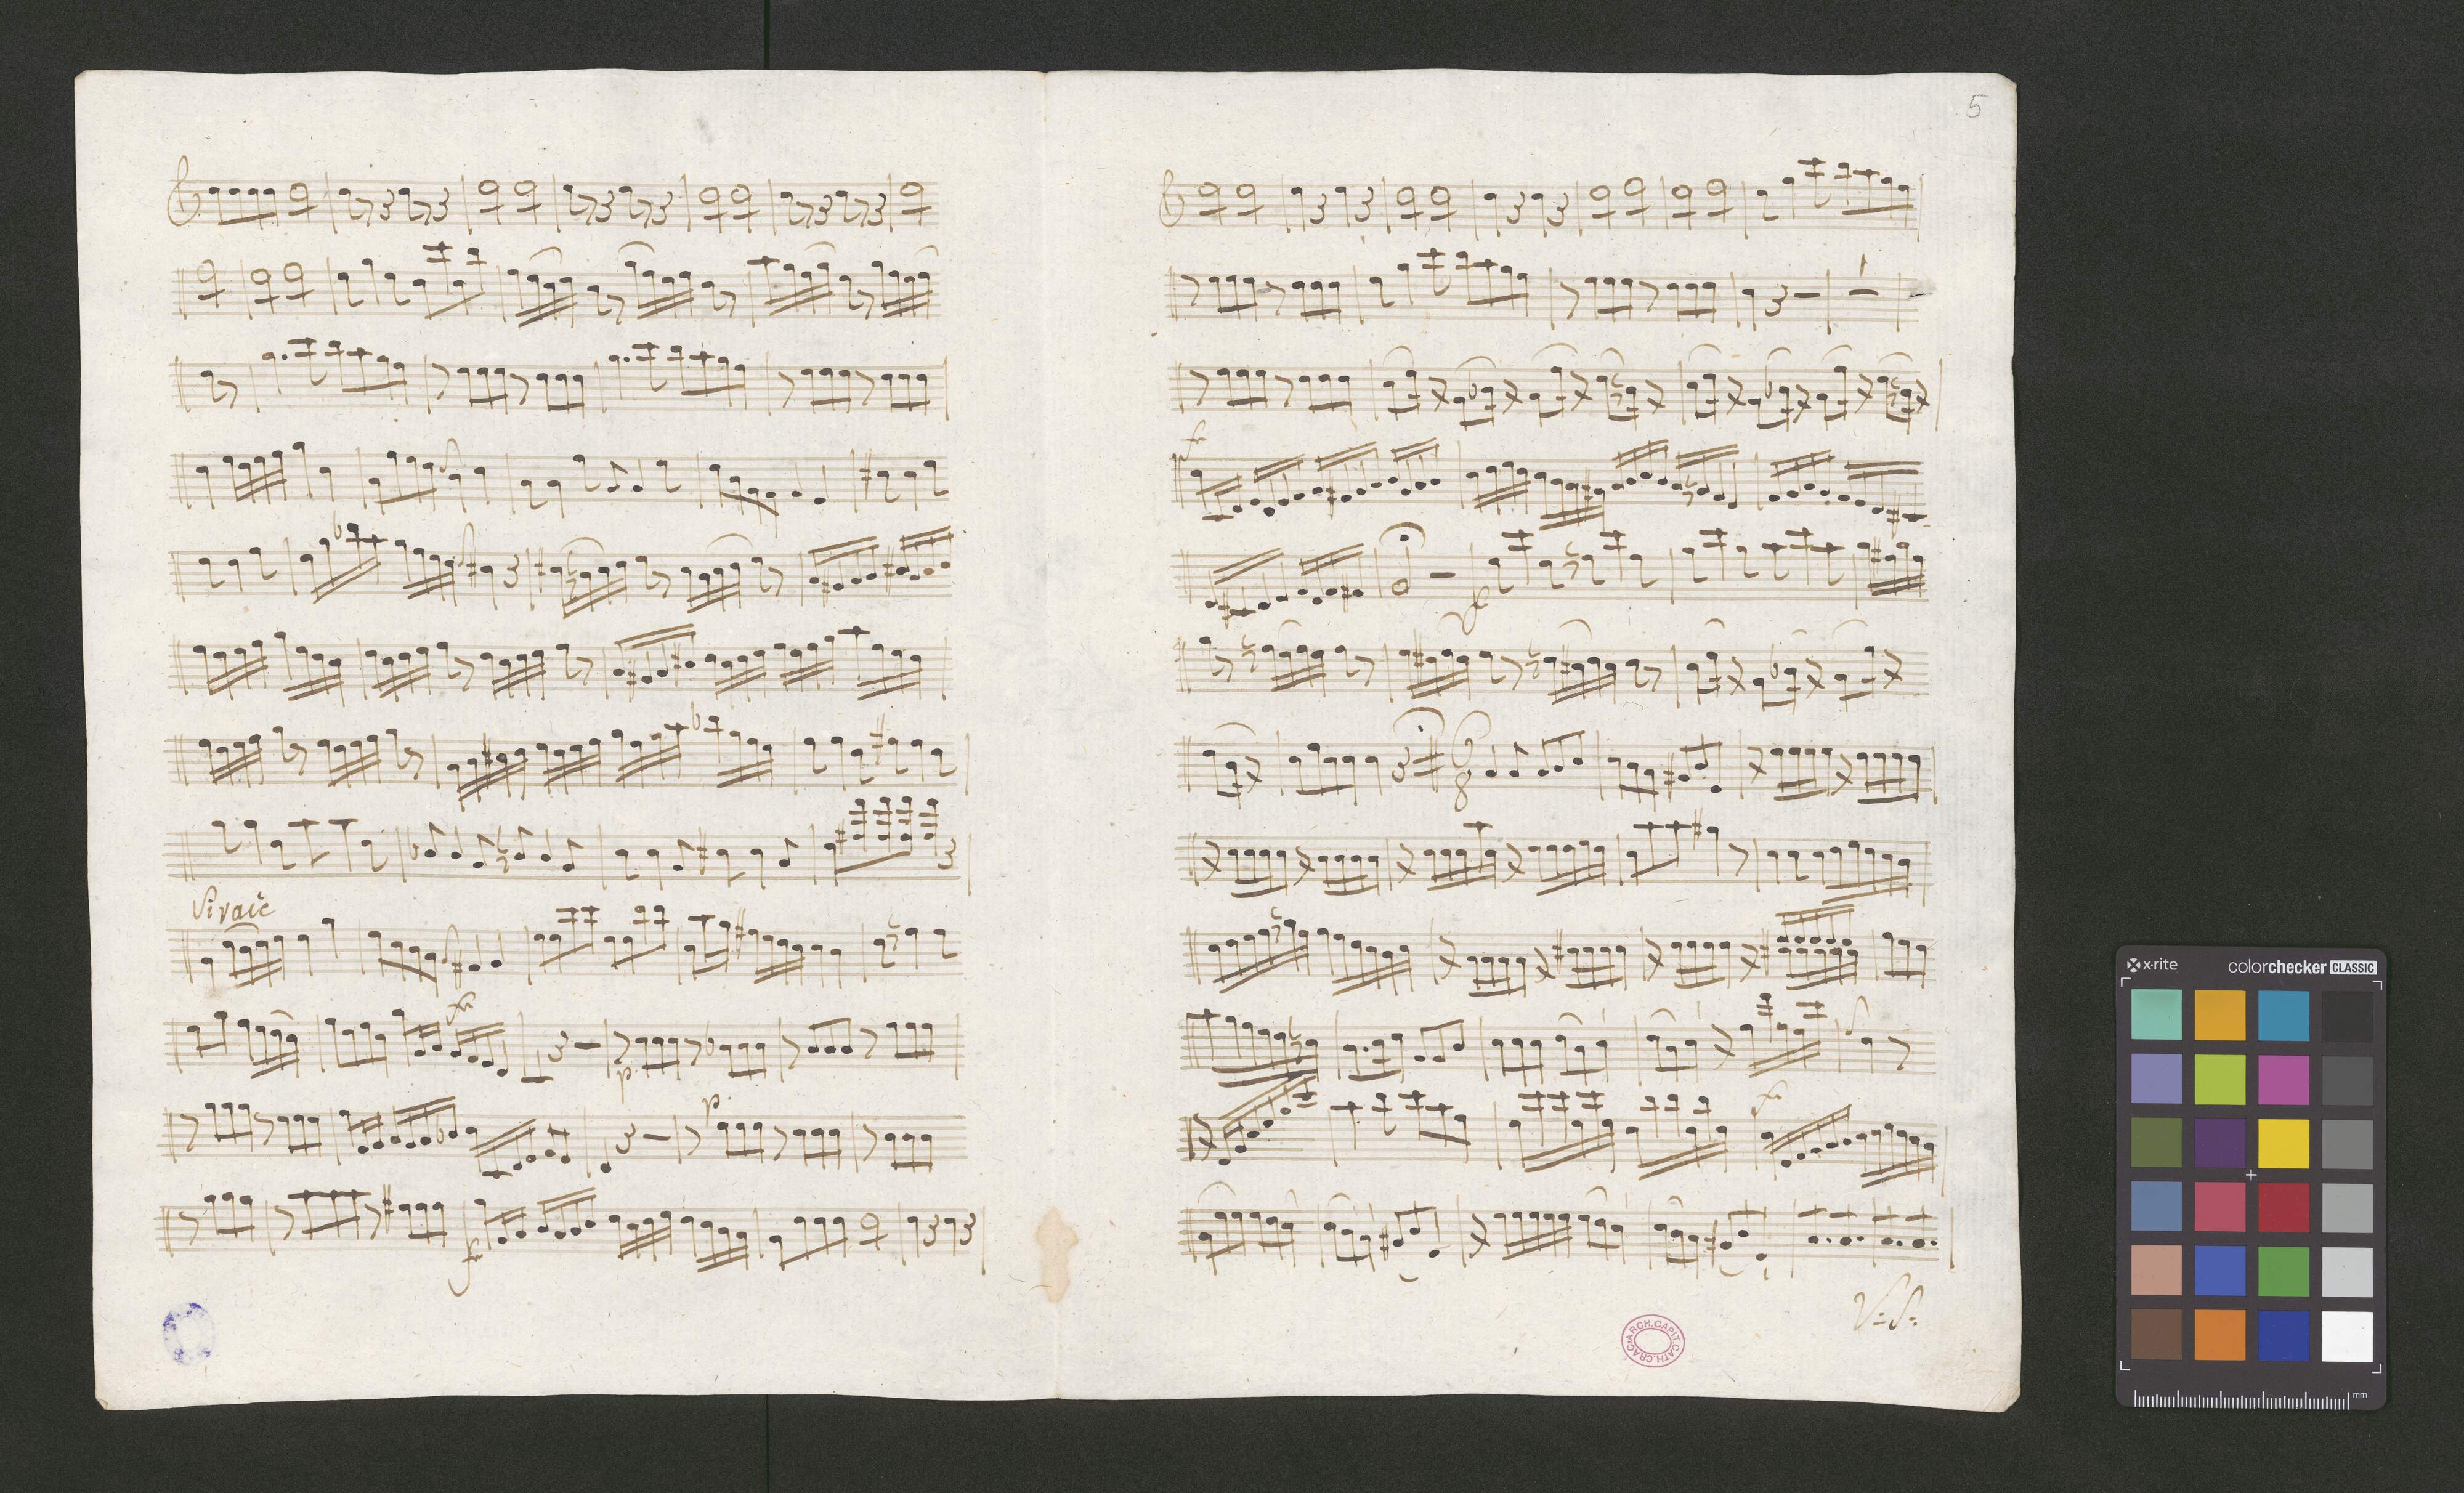 5
Vivace
p.
p.
6
8
V:S:
ARCH.CAPIT.CATH.CRAC.
x-rite
colorchecker CLASSIC
mm